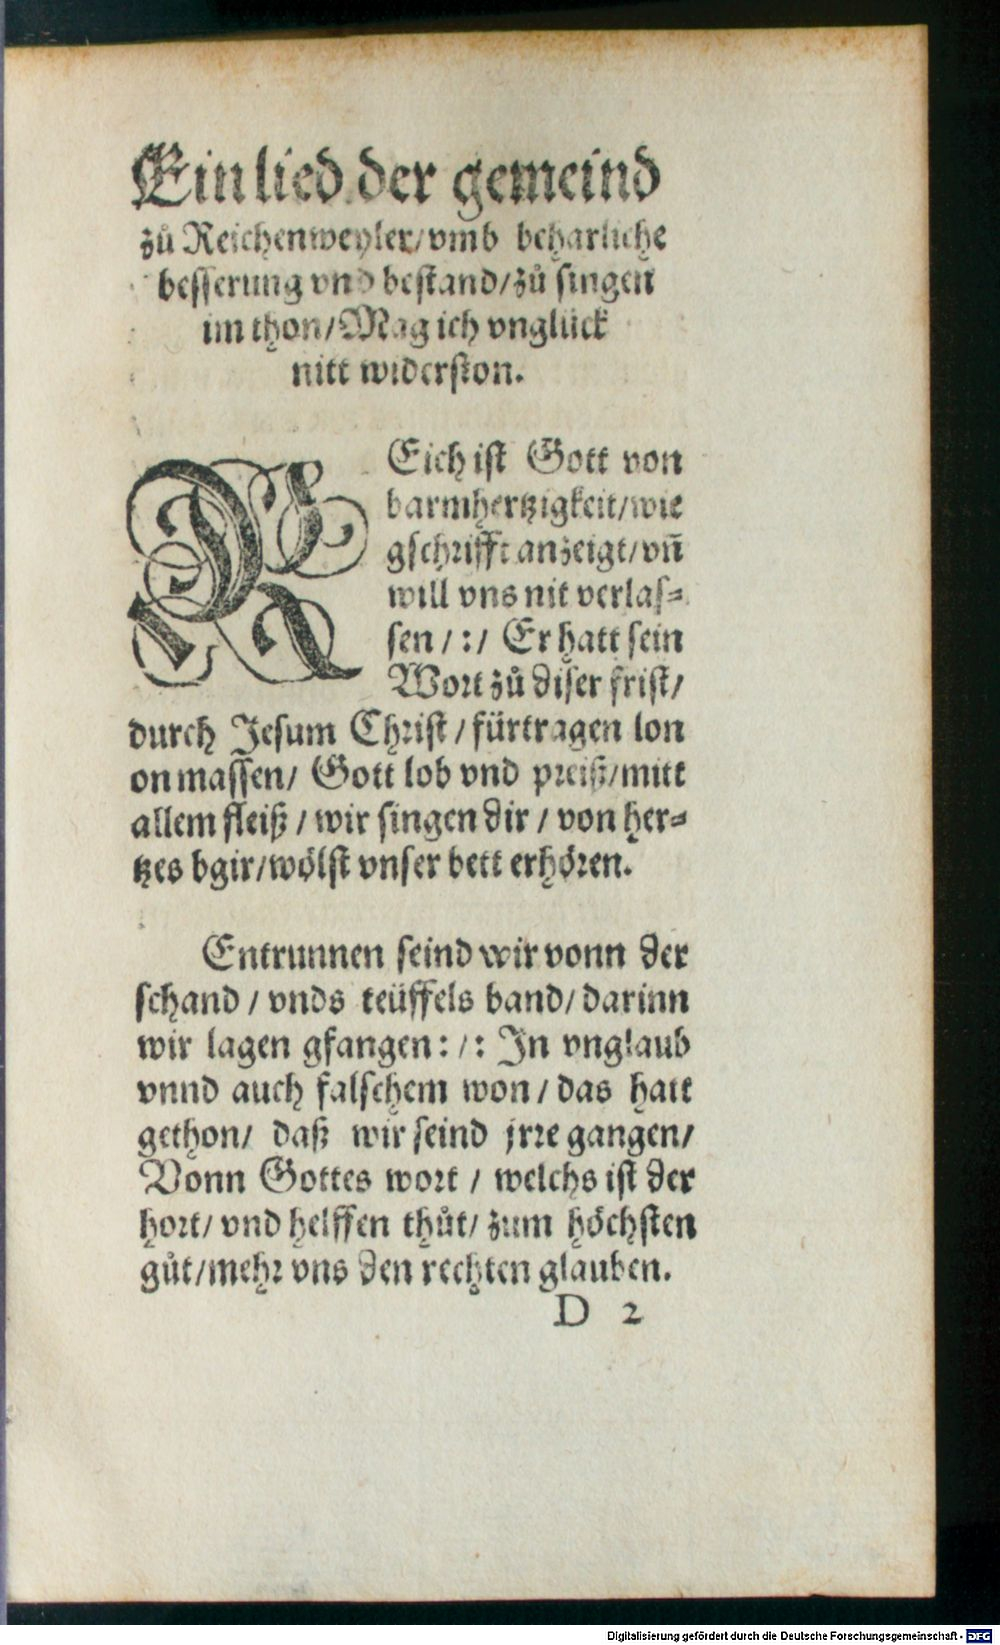 Ein lied der gemeind
zů Reichenweyler/vmb beharliche
besserung vnd bestand/zů singen
im thon/Mag ich vnglück
nitt widerston.
REich ist Gott von
barmhertzigkeit/wie
gschrifft anzeigt/vñ
will vns nit verlas⸗
sen /:/ Er hatt sein
Wort zů diser frist/
durch Jesum Christ / fürtragen lon
on massen/ Gott lob vnd preiß/mitt
allem fleiß / wir singen dir / von her⸗
tzes bgir/wölst vnser bett erhören.
Entrunnen seind wir vonn der
schand / vnds teüffels band/ darinn
wir lagen gfangen: /: In vnglaub
vnnd auch falschem won / das hatt
gethon/ daß wir seind jrre gangen/
Vonn Gottes wort / welchs ist der
hort/ vnd helffen thůt/ zum höchsten
gůt/mehr vns den rechten glauben.
D 2
Digitalisierung gefördert durch die Deutsche Forschungsgemeinschaft - DFG